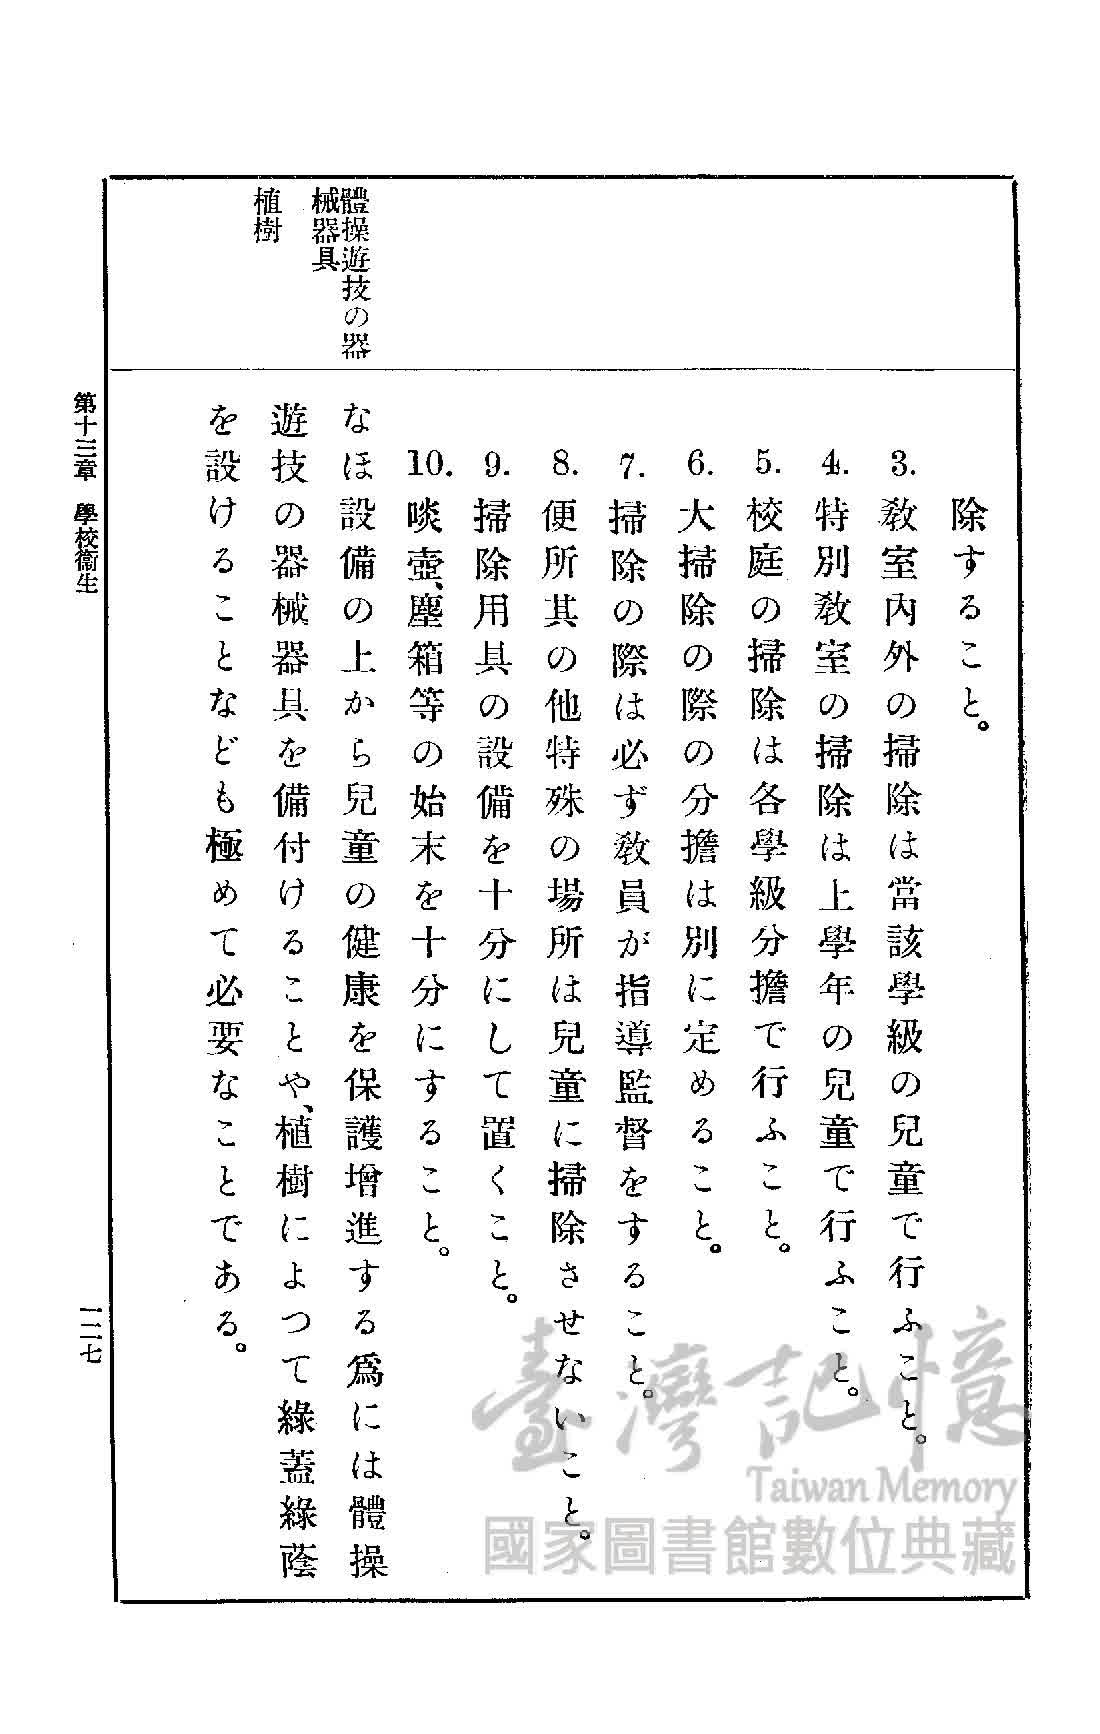 除すること。
3. 敎室內外の掃除は當該學級の兒童で行ふこと。
4. 特別敎室の掃除は上學年の兒童で行ふこと。
5. 校庭の掃除は各學級分擔で行ふこと。
6. 大掃除の際の分擔は別に定めること。
7. 掃除の際は必ず敎員が指導監督をすること。
8. 便所其の他特殊の場所は兒童に掃除させないこと。
9. 掃除用具の設備を十分にして置くこと。
10. 啖壺、塵箱等の始末を十分にすること。
體操遊技の器
械器具
植樹
なほ設備の上から兒童の健康を保護增進する爲には體操
遊技の器械器具を備付けることや、植樹によつて綠蓋綠蔭
を設けることなども極めて必要なことである。
第十三章 學校衞生
一二七
臺灣記憶
Taiwan Memory
國家圖書館數位典藏